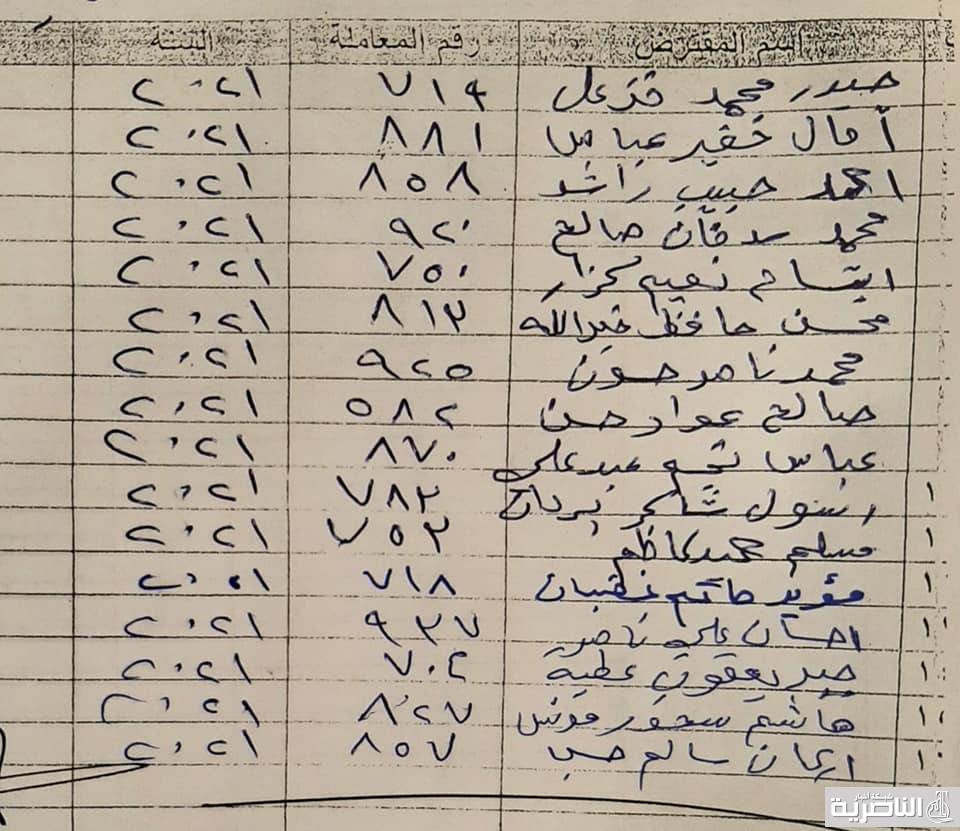 اسم المقترض رقم المعاملة السنة
حيدر محمد خزعل ٧١٩ ٢٠٢١
آمال خضير عباس ٨٨١ ٢٠٢١
احمد حبيب راشد ٨٥٨ ٢٠٢١
محمد صالح ٩٢٠ ٢٠٢١
ابتسام نعيم ٧٥٠ ٢٠٢١
محسن حافظ خيرالله ٨١٣ ٢٠٢١
محمد ناصر حسون ٩٢٥ ٢٠٢١
صالح عواد حسن ٥٨٢ ٢٠٢١
عباس نجم عبد علي ٨٧٠ ٢٠٢١
١ رسول شاكر ٧٨٣ ٢٠٢١
١ مسلم محمد كاظم ٧٥٣ ٢٠٢١
١ مؤيد حاتم غضبان ٧١٨ ٢٠٢١
١ احسان علي ناصر ٩٣٧ ٢٠٢١
١ حيدر يعقوب عطية ٧٠٤ ٢٠٢١
١ هاشم مونس ٨٢٧ ٢٠٢١
١ ايمان سالم ٨٥٧ ٢٠٢١
شبكة أخبار الناصرية